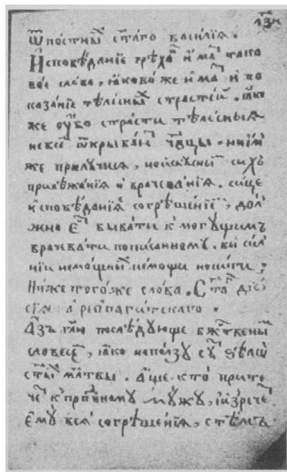 ѿ постныⷯ ст҃аго василїа .
Исповѣданїе грѣхо́ⷡ имаⷮ тако
вое слово , ꙗковоже имаⷮ и по
казанїе тѣлесныⷯ страстей . ꙗко
же оубо страсти тѣлесныꙗ
не всѣⷨ ѿкрываюⷮ
же прилучиⷭ҇ , но искуснымъ сихъ
врачеванїѧ . сице
и исповѣданїе согрѣшенїи , дол
жно еⷭ҇ бывати к могущимъ
врачевати по писанному . вы силⷩ
нїи немощныⷯ немощи носите ;
Ниже тогоже слова . Ст҃аⷢ дїѡ
сїа арїѡпагитскаго
Азъ гл҃ю послѣдующе бж҃твеныⷨ
словесеⷨ , ꙗко на ползу суⷮ ѕѣлѡ
ст҃ыⷯ мл҃твы . Аще кто прите
чеⷮ к прпⷣбному мужу , и изⸯречеⷮ
ему всѧ согрѣшенїѧ , с тѣмъ